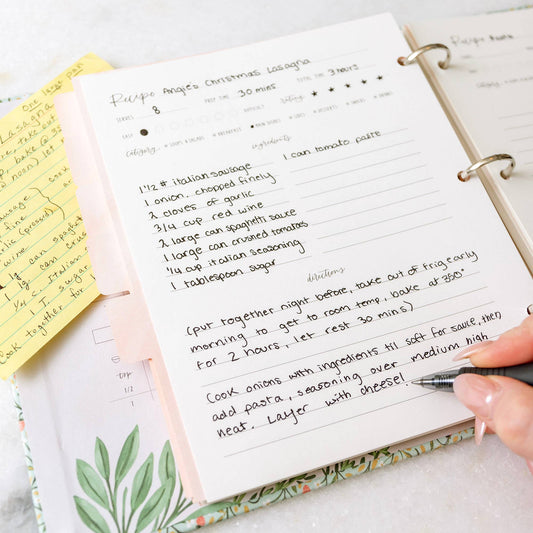 Recipe Angie's Christmas Lasagna
SERVES 8 PREP TIME 30 mins TOTAL TIME 3 hours
EASY DIFFICULT Rating ★ ★ ★ ★ ★
Category SOUP & SALADS BREAKFAST MAIN DISHES SIDES DESSERTS BREADS DRINKS
ingredients
1 1/2 # italian sausage
1 onion, chopped finely
2 cloves of garlic
3/4 cup red wine
2 large can spaghetti sauce
2 large can crushed tomatoes
1/4 cup italian seasoning
1 tablespoon sugar
1 can tomato paste
directions
(put together night before, take out of frig early
morning to get to room temp, bake at 350°
for 2 hours, let rest 30 mins)
Cook onions with ingredients til soft for sauce, then
add pasta, seasoning over medium high
heat. Layer with cheese!
Lasagna
One large pan
take out
sausage
fine
(pressed)
wine
can
1 T. sugar
Cook together for
Recipe Name